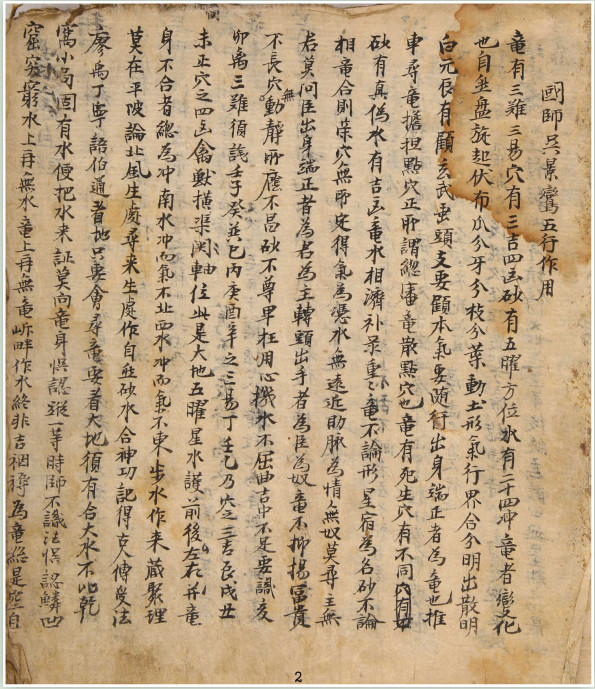 國師吳景鸞五行作用
竜有三難三易穴有三吉四凶砂有五曜方位水有二十四冲竜者變化
也自垂盤旋起伏布爪分牙分枝分葉動土形氣行界合分明出散明
白元辰有顧玄武垂頭支要顧本氣要随行出身端正者為竜也推
車尋竜擔担點穴正所謂總潘竜散點穴也竜有死生穴有不同穴有
砂有真偽水有吉凶竜水相濟补竜不論形星宿為名砂不論
相竜合則葬穴無所定得氣為憑水無遠近助脉為情無奴莫尋主無
君莫問臣出身端正者為君為主轉頭出手者為臣為奴竜不抑揚富貴
不長穴無動靜所應不昌砂不尊卑枉用心機水不屈曲吉中不足要識亥
卯离三難須識壬子癸巽巳丙庚酉辛之三易丁壬乃穴之三吉艮戌丑
未正穴之四凶禽獸橫渠関軸位此是大地五曜星水護前後左右并竜
身不合者總為冲南水冲而氣不北西水冲而氣不東步水作来蔵聚理
莫在平陂論北風生處尋来生處作自庄砂水合神功記得克傳受法
廖禹丁寧語伯通者地只要會尋竜要着大地須有合大水不比乾
窩小局固有水便把水来証莫向竜身悞認蹤一等時師不識法悞認鱗凹
窟穷窮水上再無水竜上再無竜岍畔作水終非吉裀褥為竜總是空自
2